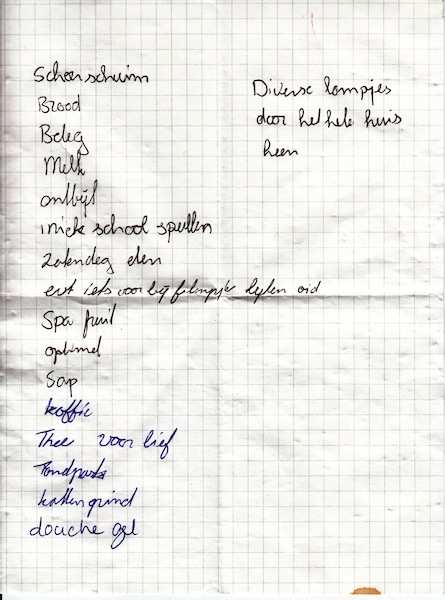 Scheerschuim
Brood
Beleg
Melk
ontbijt
inick school spullen
zaterdag eten
evt iets voor bij filmpje kijken oid
Spa fruit
optimel
Sap
koffie
Thee voor lief
Tandpasta
kattengrind
douche gel
Diverse lampjes
door het hele huis
heen